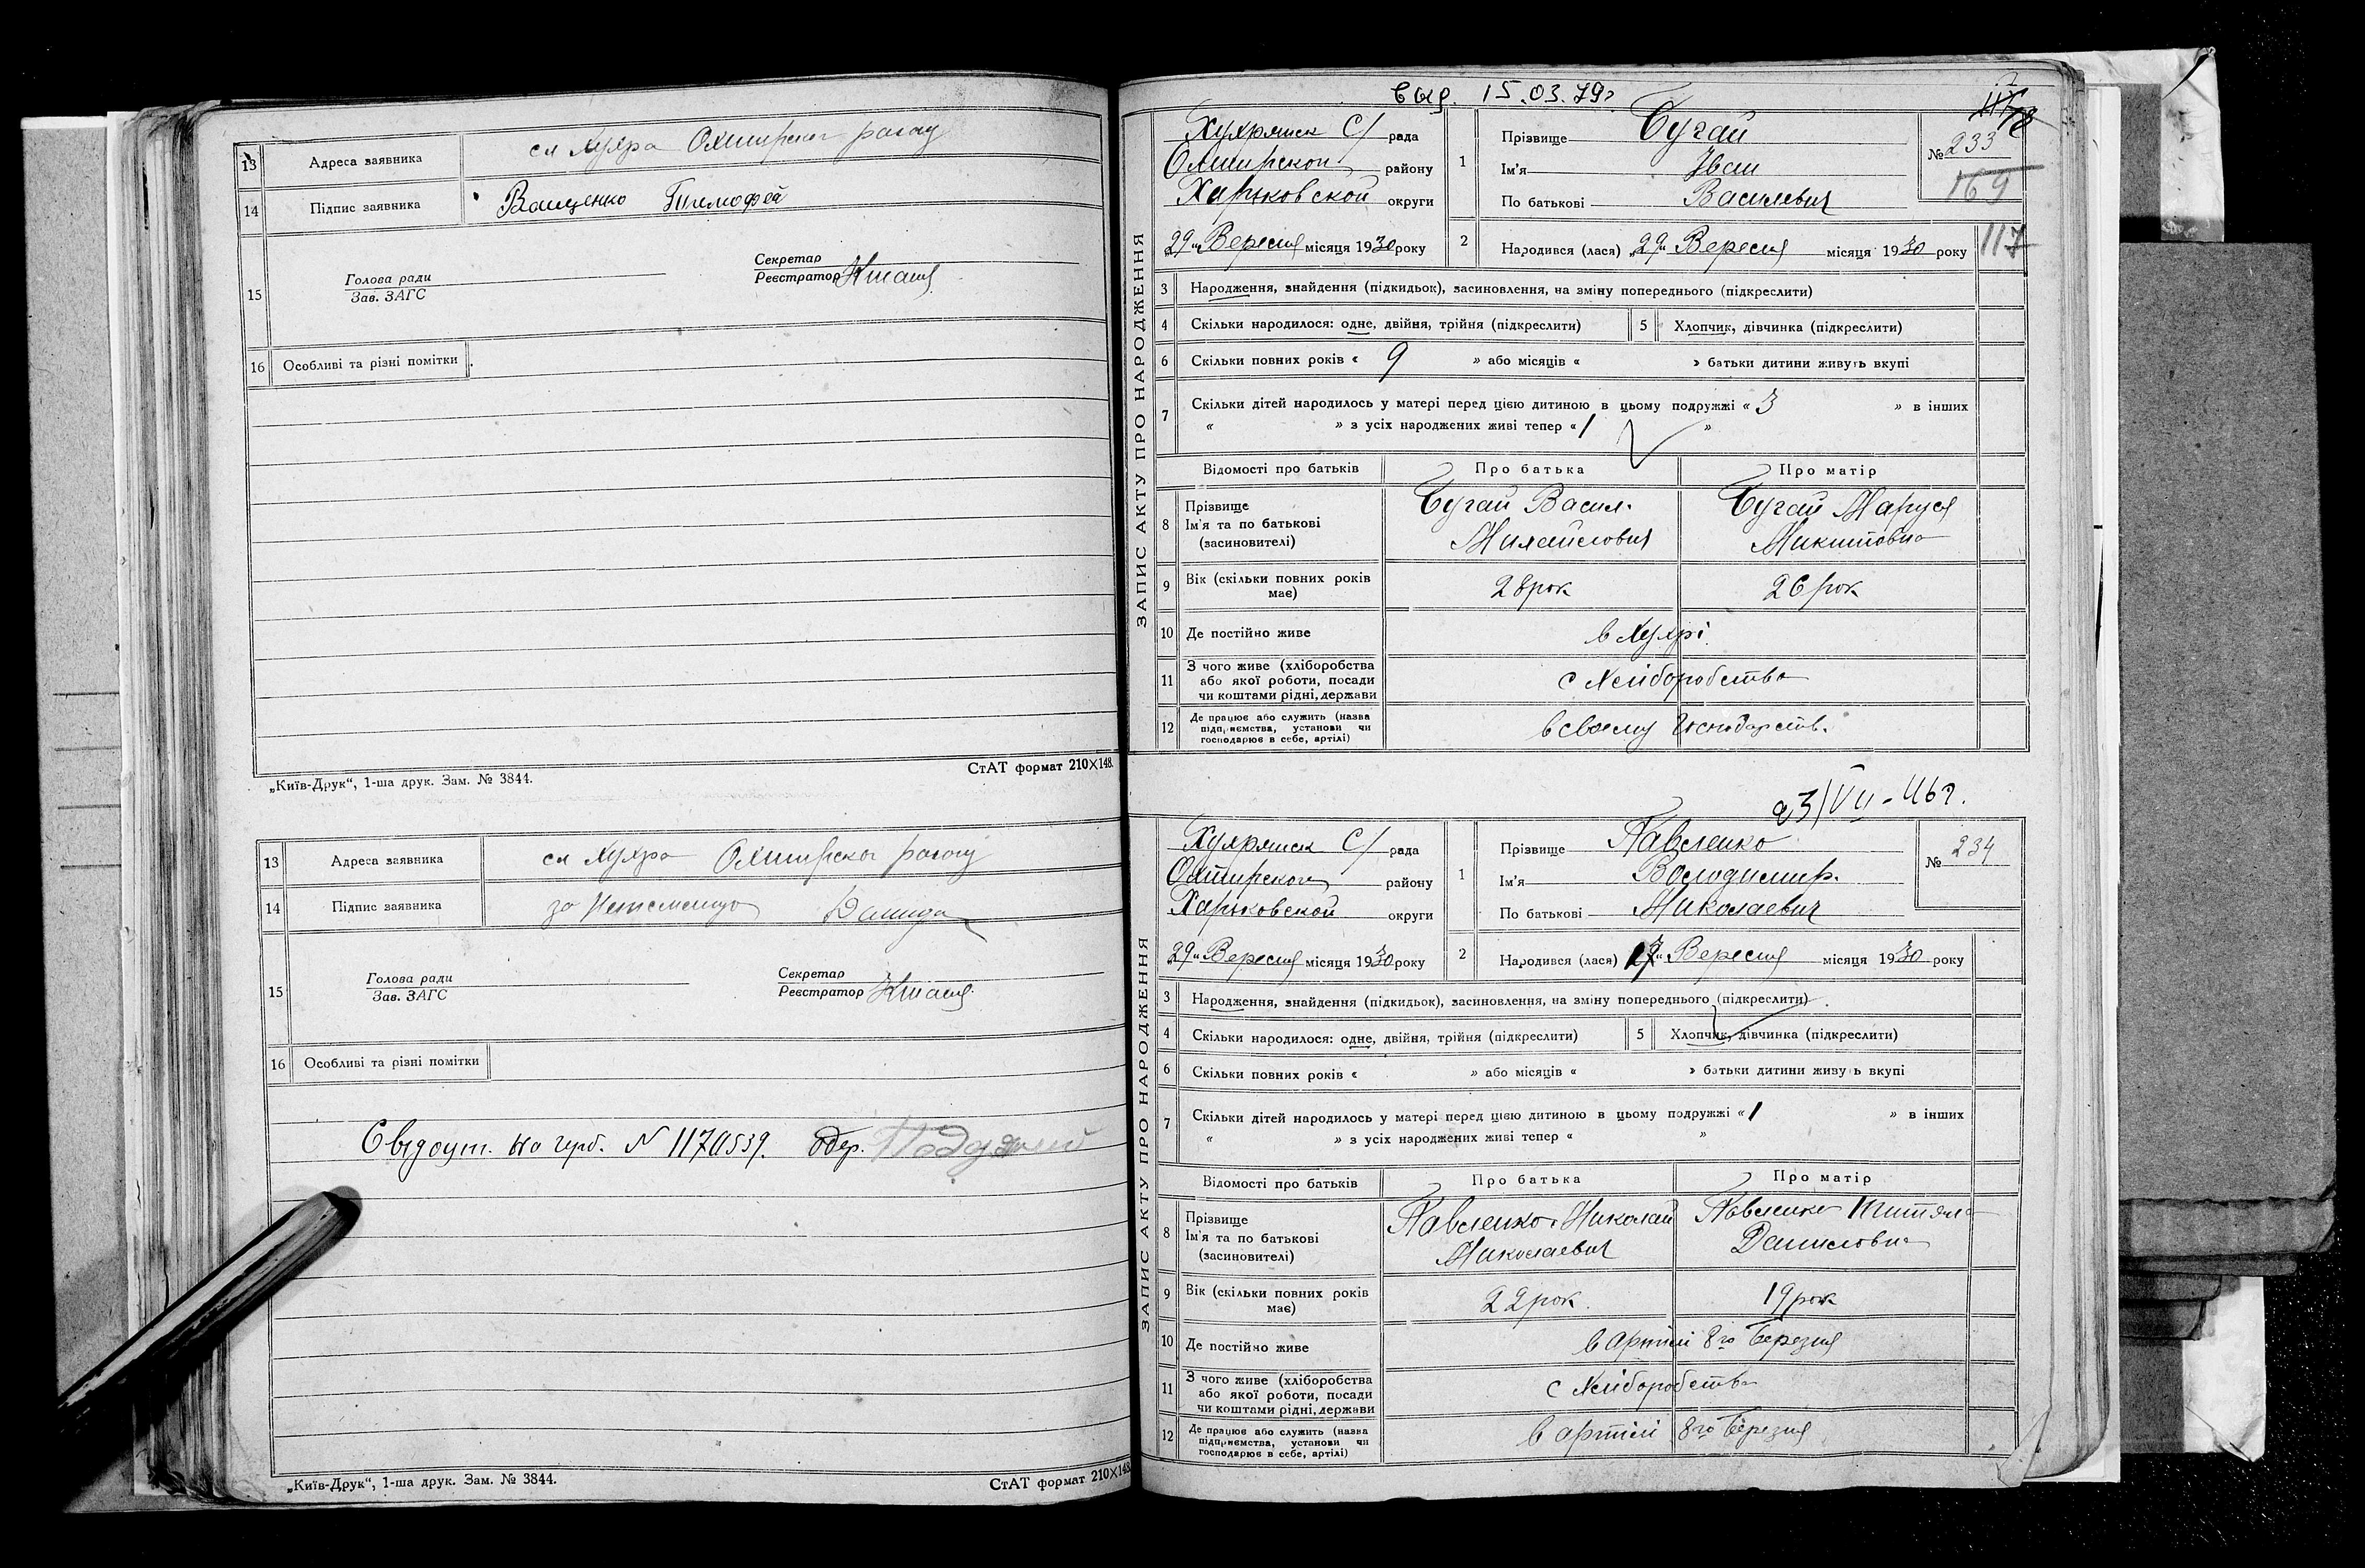 13 Адреса заявника сл Хухра Охтирског району
14 Підпис заявника Ващенко Тимофей
15 Голова ради
Зав. ЗАГС
Секретар
Реєстратор
16 Особливі та різні помітки
„Київ-Друк“, 1-ша друк. Зам. № 3844.
СтАТ формат 210×148.
13 Адреса заявника сл Хухра Охтирског району
14 Підпис заявника за
15 Голова ради
Зав. ЗАГС
Секретар
Реєстратор
16 Особливі та різні помітки
Свідоцт. N 1170539. одер.
„Київ-Друк“, 1-ша друк. Зам. № 3844.
СтАТ формат 210×148.
выд. 15.03.79г
ЗАПИС АКТУ ПРО НАРОДЖЕННЯ
Хухрянск С/ рада
Охтирской району
Харьковской округи
„29“ Вересня місяця 1930 року
1 Прізвище Бугай
Ім'я Іван
По батькові Василевич
№ 233
169
117
2 Народився (лася) „29“ Вересня місяця 1930 року
3 Народження, знайдення (підкидьок), засиновлення, на зміну попереднього (підкреслити)
4 Скільки народилося: одне, двійня, трійня (підкреслити) 5 Хлопчик, дівчинка (підкреслити)
6 Скільки повних років « 9 » або місяців « » батьки дитини живуть вкупі
7 Скільки дітей народилось у матері перед цією дитиною в цьому подружжі « 3 » в інших
« » з усіх народжених живі тепер « 1 »
Відомості про батьків Про батька Про матір
8 Прізвище
Ім'я та по батькові
(засиновителі)
Бугай Васил.
Михайлович
Бугай Маруся
Микитовна
9 Вік (скільки повних років
має)
28 рок 26 рок
10 Де постійно живе в Хухрі
11 З чого живе (хліборобства
або якої роботи, посади
чи коштами рідні, держави
с Хліборобства
12 Де працює або служить (назва
підприємства, установи чи
господарює в себе, артілі)
в своєму господарств.
23/VII-46г.
ЗАПИС АКТУ ПРО НАРОДЖЕННЯ
Хухрянск С/ рада
Охтирской району
Харьковской округи
„29“ Вересня місяця 1930 року
1 Прізвище Павленко
Ім'я Володимир.
По батькові Миколаевич
№ 234
2 Народився (лася) Вересня місяця 1930 року
3 Народження, знайдення (підкидьок), засиновлення, на зміну попереднього (підкреслити)
4 Скільки народилося: одне, двійня, трійня (підкреслити) 5 Хлопчик, дівчинка (підкреслити)
6 Скільки повних років « » або місяців « » батьки дитини живуть вкупі
7 Скільки дітей народилось у матері перед цією дитиною в цьому подружжі « 1 » в інших
« » з усіх народжених живі тепер « »
Відомості про батьків Про батька Про матір
8 Прізвище
Ім'я та по батькові
(засиновителі)
Павленко Николай
Миколаевич
Павленко
Даниловна
9 Вік (скільки повних років
має)
22 рок. 19 рок
10 Де постійно живе в артілі 8го Березня
11 З чого живе (хліборобства
або якої роботи, посади
чи коштами рідні, держави
с Хліборобства
12 Де працює або служить (назва
підприємства, установи чи
господарює в себе, артілі)
в артілі 8го Березня